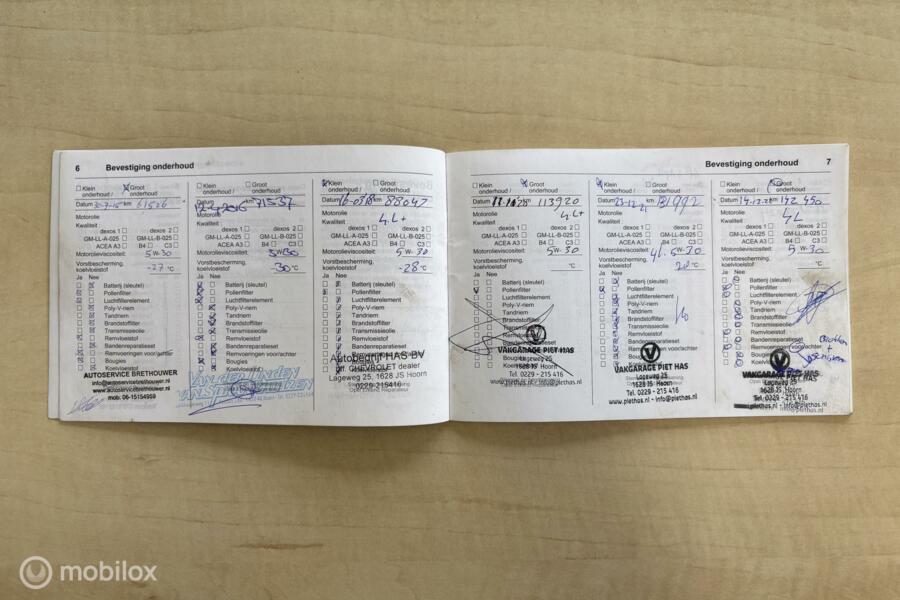 6 Bevestiging onderhoud
Klein onderhoud / Groot onderhoud
Datum 30-7-15 km 61526
Motorolie
Kwaliteit
dexos 1 dexos 2
GM-LL-A-025 GM-LL-B-025
ACEA A3 B4 C3
Motorolieviscositeit: 5W-30
Vorstbescherming, koelvloeistof -27 °C
Ja Nee
Batterij (sleutel)
Pollenfilter
Luchtfilterelement
Poly-V-riem
Tandriem
Brandstoffilter
Transmissieolie
Remvloeistof
Bandenreparatieset
Remvoeringen voor/achter
Bougies
AUTOSERVICE BRETHOUWER
info@autoservicebrethouwer.nl
www.autoservicebrethouwer.nl
mob: 06-15154959
Klein onderhoud / Groot onderhoud
Datum 2016 km 71537
Motorolie
Kwaliteit
dexos 1 dexos 2
GM-LL-A-025 GM-LL-B-025
ACEA A3 B4 C3
Motorolieviscositeit: 5W30
Vorstbescherming, koelvloeistof -30 °C
Ja Nee
Batterij (sleutel)
Pollenfilter
Luchtfilterelement
Poly-V-riem
Tandriem
Brandstoffilter
Transmissieolie
Remvloeistof
Bandenreparatieset
Remvoeringen voor/achter
Bougies
Klein onderhoud / Groot onderhoud
Datum 16-03-18 km 88047
Motorolie 4L+
Kwaliteit
dexos 1 dexos 2
GM-LL-A-025 GM-LL-B-025
ACEA A3 B4 C3
Motorolieviscositeit: 5W-30
Vorstbescherming, koelvloeistof -28 °C
Ja Nee
Batterij (sleutel)
Pollenfilter
Luchtfilterelement
Poly-V-riem
Tandriem
Brandstoffilter
Transmissieolie
Remvloeistof
Bandenreparatieset
Autobedrijf HAS BV
CHEVROLET dealer
Lageweg 25, 1628 JS Hoorn
0229-215416
Bevestiging onderhoud 7
Klein onderhoud / Groot onderhoud
Datum km 113920
Motorolie 4L+
Kwaliteit
dexos 1 dexos 2
GM-LL-A-025 GM-LL-B-025
ACEA A3 B4 C3
Motorolieviscositeit: 5W-30
Vorstbescherming, koelvloeistof °C
Ja Nee
Batterij (sleutel)
Pollenfilter
Luchtfilterelement
Poly-V-riem
Tandriem
Brandstoffilter
Transmissieolie
VAKGARAGE PIET HAS
Lageweg 25
1628 JS Hoorn
Tel. 0229 - 215 416
www.piethas.nl - info@piethas.nl
Klein onderhoud / Groot onderhoud
Datum 23-12-21 km 131992
Motorolie
Kwaliteit
dexos 1 dexos 2
GM-LL-A-025 GM-LL-B-025
ACEA A3 B4 C3
Motorolieviscositeit: 4L 5-30
Vorstbescherming, koelvloeistof 28 °C
Ja Nee
Batterij (sleutel)
Pollenfilter
Luchtfilterelement
Poly-V-riem
Tandriem
Brandstoffilter
Transmissieolie
Remvloeistof
VAKGARAGE PIET HAS
Lageweg 25
1628 JS Hoorn
Tel. 0229 - 215 416
www.piethas.nl - info@piethas.nl
Klein onderhoud / Groot onderhoud
Datum 14-12-22 km 142450
Motorolie 4L
Kwaliteit
dexos 1 dexos 2
GM-LL-A-025 GM-LL-B-025
ACEA A3 B4 C3
Motorolieviscositeit: 5W-30
Vorstbescherming, koelvloeistof °C
Ja Nee
Batterij (sleutel)
Pollenfilter
Luchtfilterelement
Poly-V-riem
Tandriem
Brandstoffilter
Transmissieolie
Remvloeistof
Bandenreparatieset
Remvoeringen voor/achter
VAKGARAGE PIET HAS
Lageweg 25
1628 JS Hoorn
Tel. 0229 - 215 416
www.piethas.nl - info@piethas.nl
mobilox